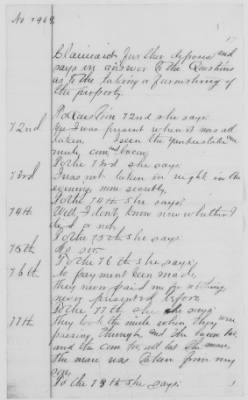 No 1968
Claimant further deposes and
says in answer to the Questions
as to the taking & furnishing of
the property
To Question 72nd she says
72nd Yes I was present when it was all
taken I seen the yankees take the
mule, corn bacon
To the 73rd she says
73rd Was not taken in night in the
evening, none secretly
To the 74th she says
74th Well, I don't know now whether I
did or not
To the 75th she says
75th No sir
To the 76th she says
76th No payment been made,
they never paid me nothing
never presented before
To the 77th she says
77th they took the mule when they were
passing through, and the bacon too
and the corn too, all but the mare,
the mare was taken from my
son
To the 78th she says